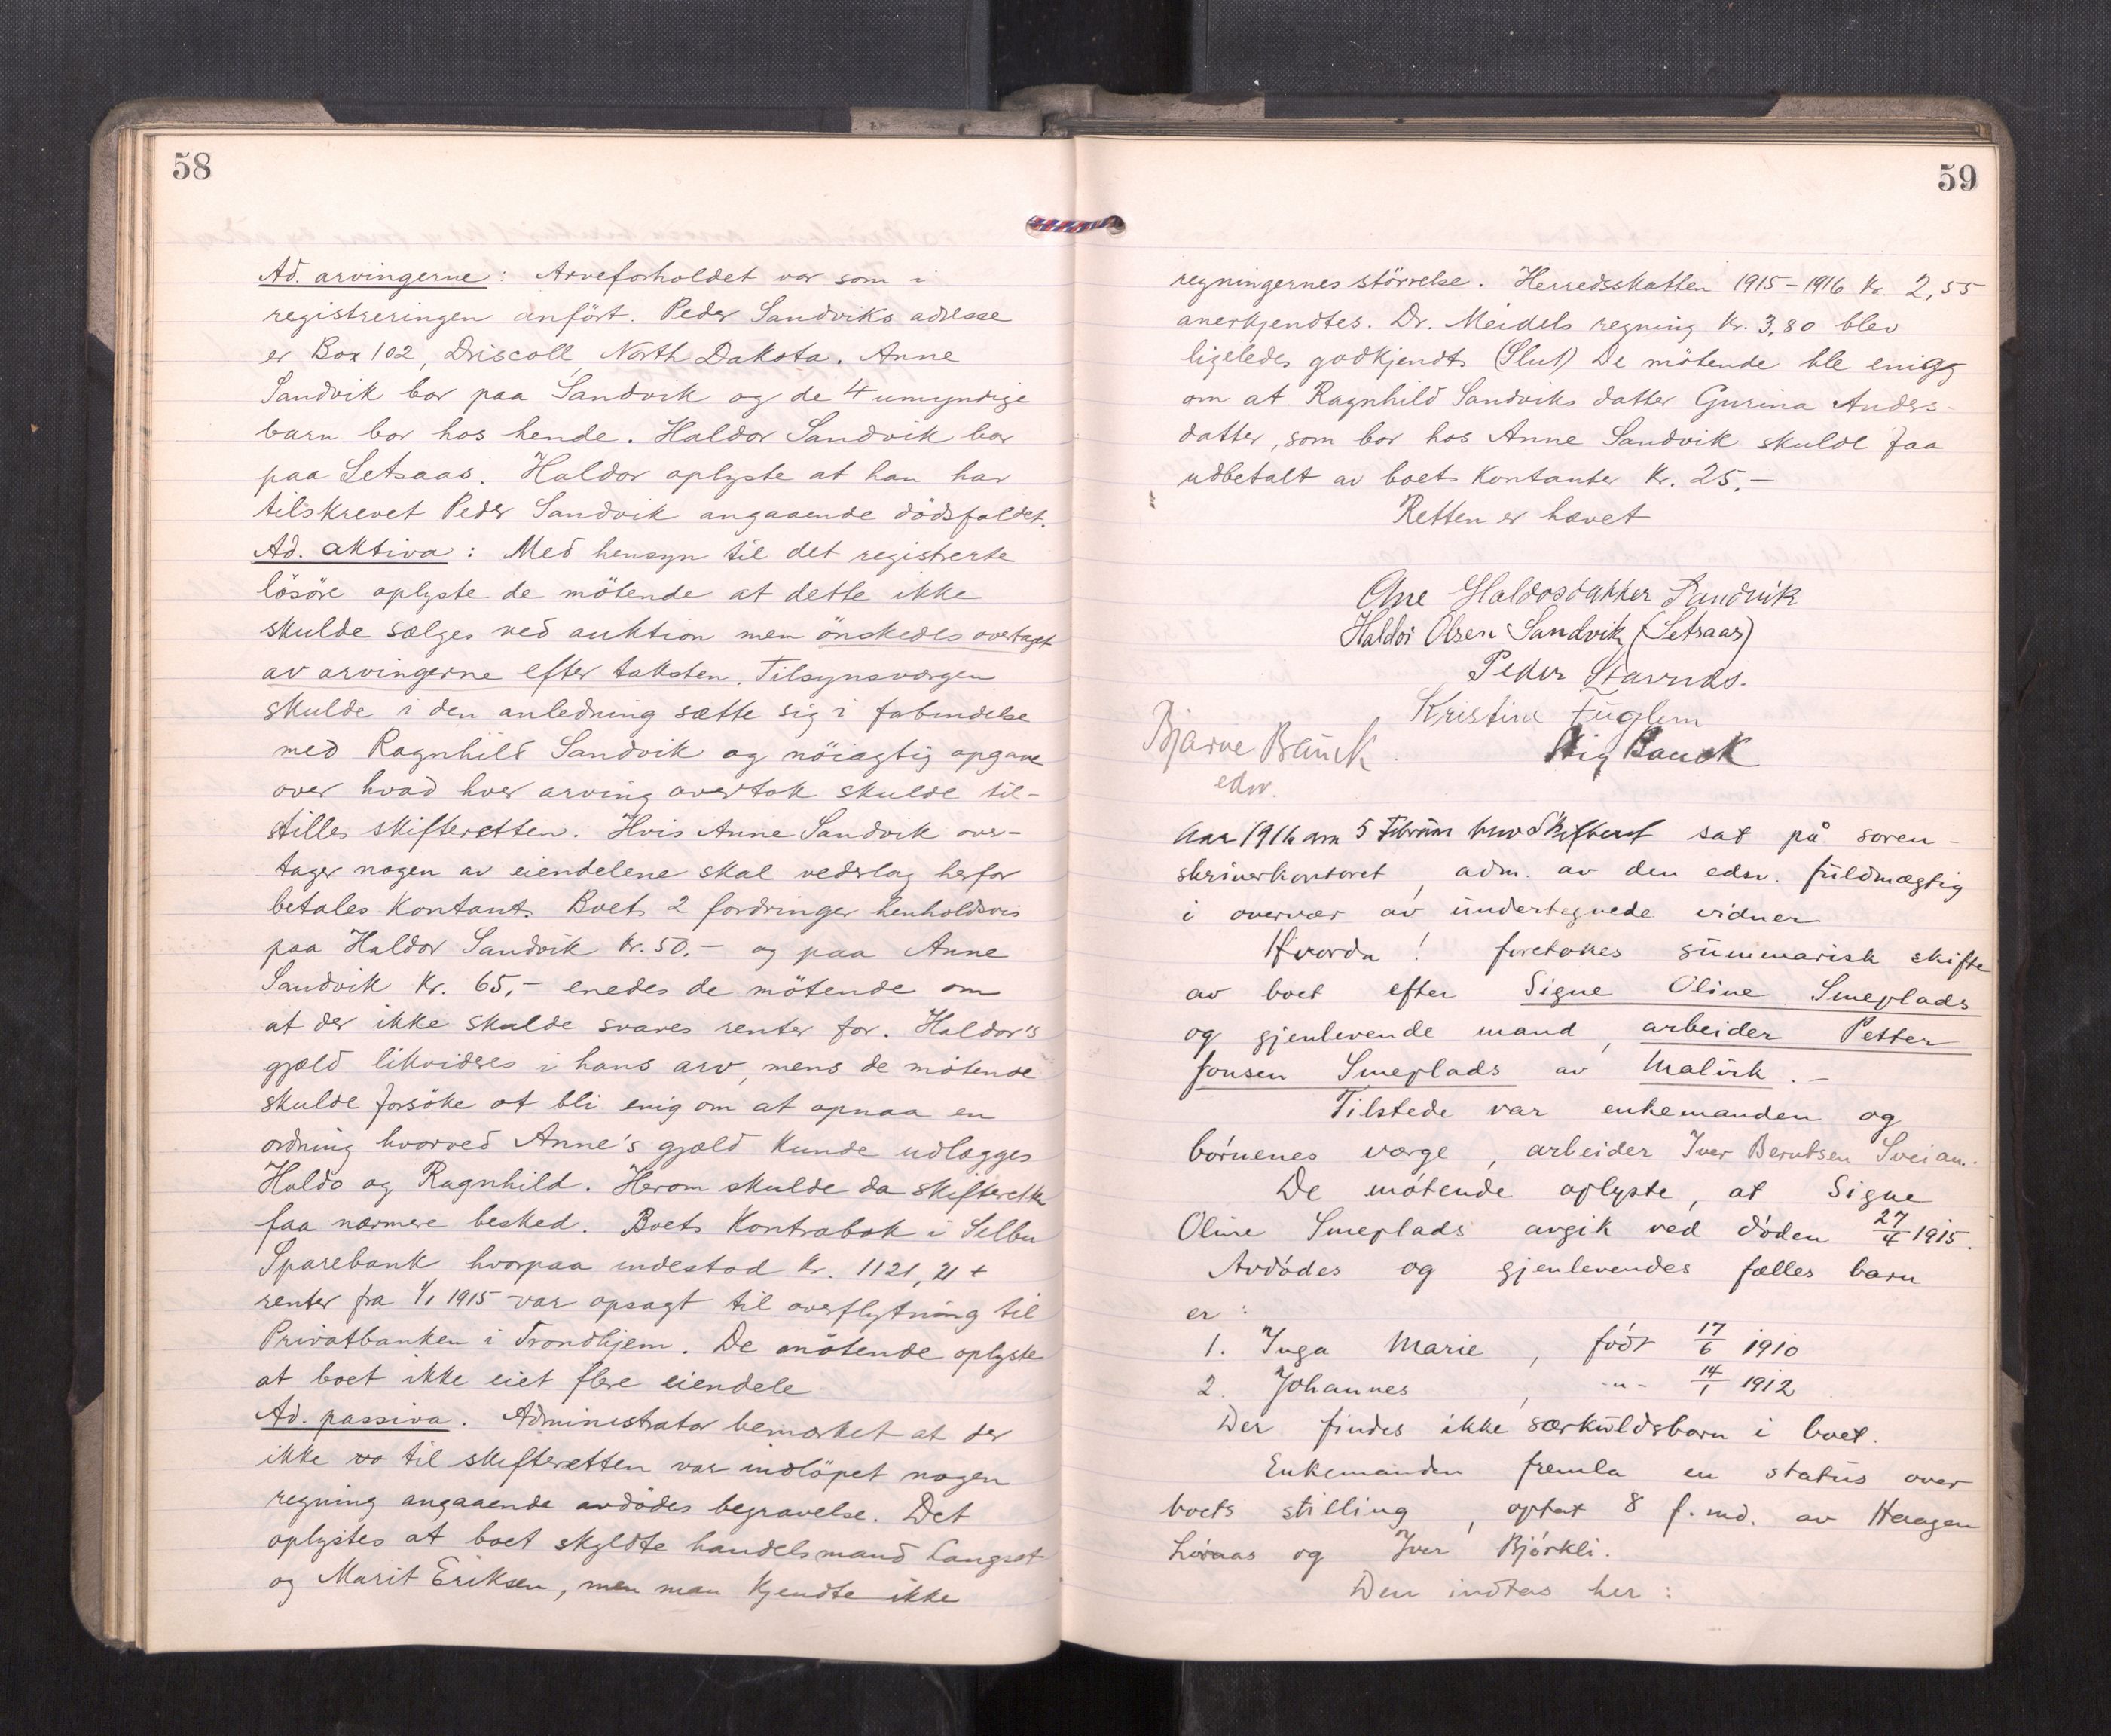 58
Ad. arvingerne: Arveforholdet var som i
registreringen anfört. Peder Sandviks adresse
er Box 102, Driscoll, North Dakota. Anne
Sandvik bor paa Sandvik og de 4 umyndige
barn bor hos hende. Haldor Sandvik bor
paa Setsaas. Haldor oplyste at han har
tilskrevet Peder Sandvik angaaende dödsfaldet.
Ad. aktiva: Med hensyn til det registrerte
lösöre oplyste de mötende at dette ikke
skulde sælges ved auktion men önskedes overtaget
av arvingerne efter taksten. Tilsynsværgen
skulde i den anledning sætte sig i forbindelse
med Ragnhild Sandvik og nöiagtig opgave
over hvad hver arving overtok skulde til-
stilles skifteretten. Hvis Anne Sandvik over-
tager nogen av eiendelene skal vederlag herfor
betales kontant. Boets 2 fordringer henholdsvis
paa Haldor Sandvik kr. 50.- og paa Anne
Sandvik kr. 65,- enedes de mötende om
at der ikke skulde svares renter for. Haldor's
gjæld likvideres i hans arv, mens de mötende
skulde forsöke at bli enig om at opnaa en
ordning hvorved Anne's gjæld kunde udlægges
Haldo og Ragnhild. Herom skulde da skifteretten
faa nærmere besked. Boets Kontrabok i Selbu
Sparebank hvorpaa indestod kr. 1121,21 +
renter fra 1/1 1915 var opsagt til overflytning til
Privatbanken i Trondhjem. De mötende oplyste
at boet ikke eiet flere eiendele
Ad. passiva. Administrator bemærket at der
ikke va til skifteretten var indlöpet nogen
regning angaaende avdödes begravelse. Det
oplystes at boet skyldte handelsmand Langset
og Marit Eriksen, men man kjendte ikke
59
regningernes störrelse. Herredsskatten 1915-1916 kr. 2,55
anerkjendtes. Dr. Meidels regning kr. 3,80 blev
ligeledes godkjendt. (Slut) De mötende ble enigg
om at Ragnhild Sandviks datter Gurina Anders-
datter, som bor hos Anne Sandvik skulde faa
udbetalt av boets kontanter kr. 25.-
Retten er hævet
Ane Haldosdatter Sandvik
Haldor Olsen Sandvik (Setsaas)
Peder Stavnds.
Kristine Fuglem
Bjarne Bauck
Stig Bauck
edsv.
Aar 1916 den 5 Februar blev Skifteret sat på soren-
skriverkontoret, adm. av den edsv. fuldmægtig
i overvær av undertegnede vidner
Hvorda! foretokes summarisk skifte
av boet efter Signe Oline Smeplads
og gjenlevende mand, arbeider Petter
Jonsen Smeplads av Malvik.-
Tilstede var enkemanden og
børnenes værge, arbeider Iver Berntsen Sveian.
De møtende oplyste, at Signe
Oline Smeplads avgik ved døden 27/4 1915.
Avdødes og gjenlevendes fælles barn
er:
1. Inga Marie, født 17/6 1910
2. Johannes, -"- 14/1 1912
Der findes ikke særkuldsbarn i boet.
Enkemanden fremla en status over
boets stilling, optat 8 f. md. av Haagen
og Iver Bjørkli.
Den indtas her: